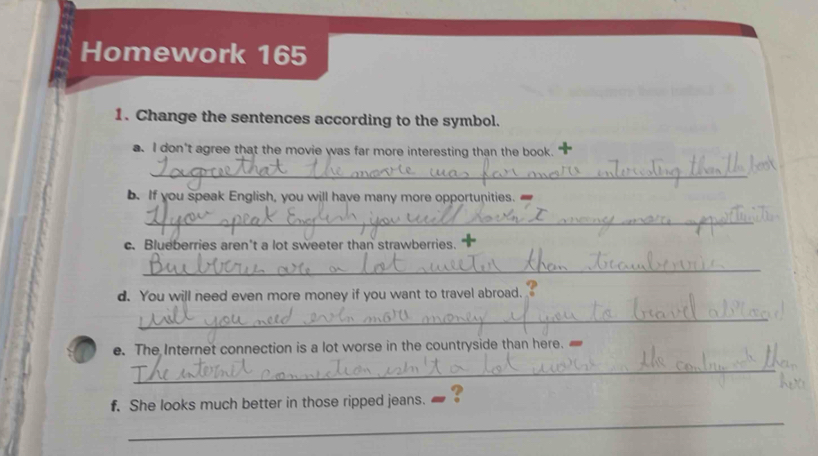 Homework 165
1. Change the sentences according to the symbol.
a. I don't agree that the movie was far more interesting than the book. +
I agree that the movie was far more interesting than the book
b. If you speak English, you will have many more opportunities. -
If you speak English, you will haven't many more
c. Blueberries aren't a lot sweeter than strawberries. +
are a lot than
d. You will need even more money if you want to travel abroad. ?
Will you need even more money if you to travel
e. The Internet connection is a lot worse in the countryside than here. -
The internet connection isn't a lot the than
here
f. She looks much better in those ripped jeans. - ?